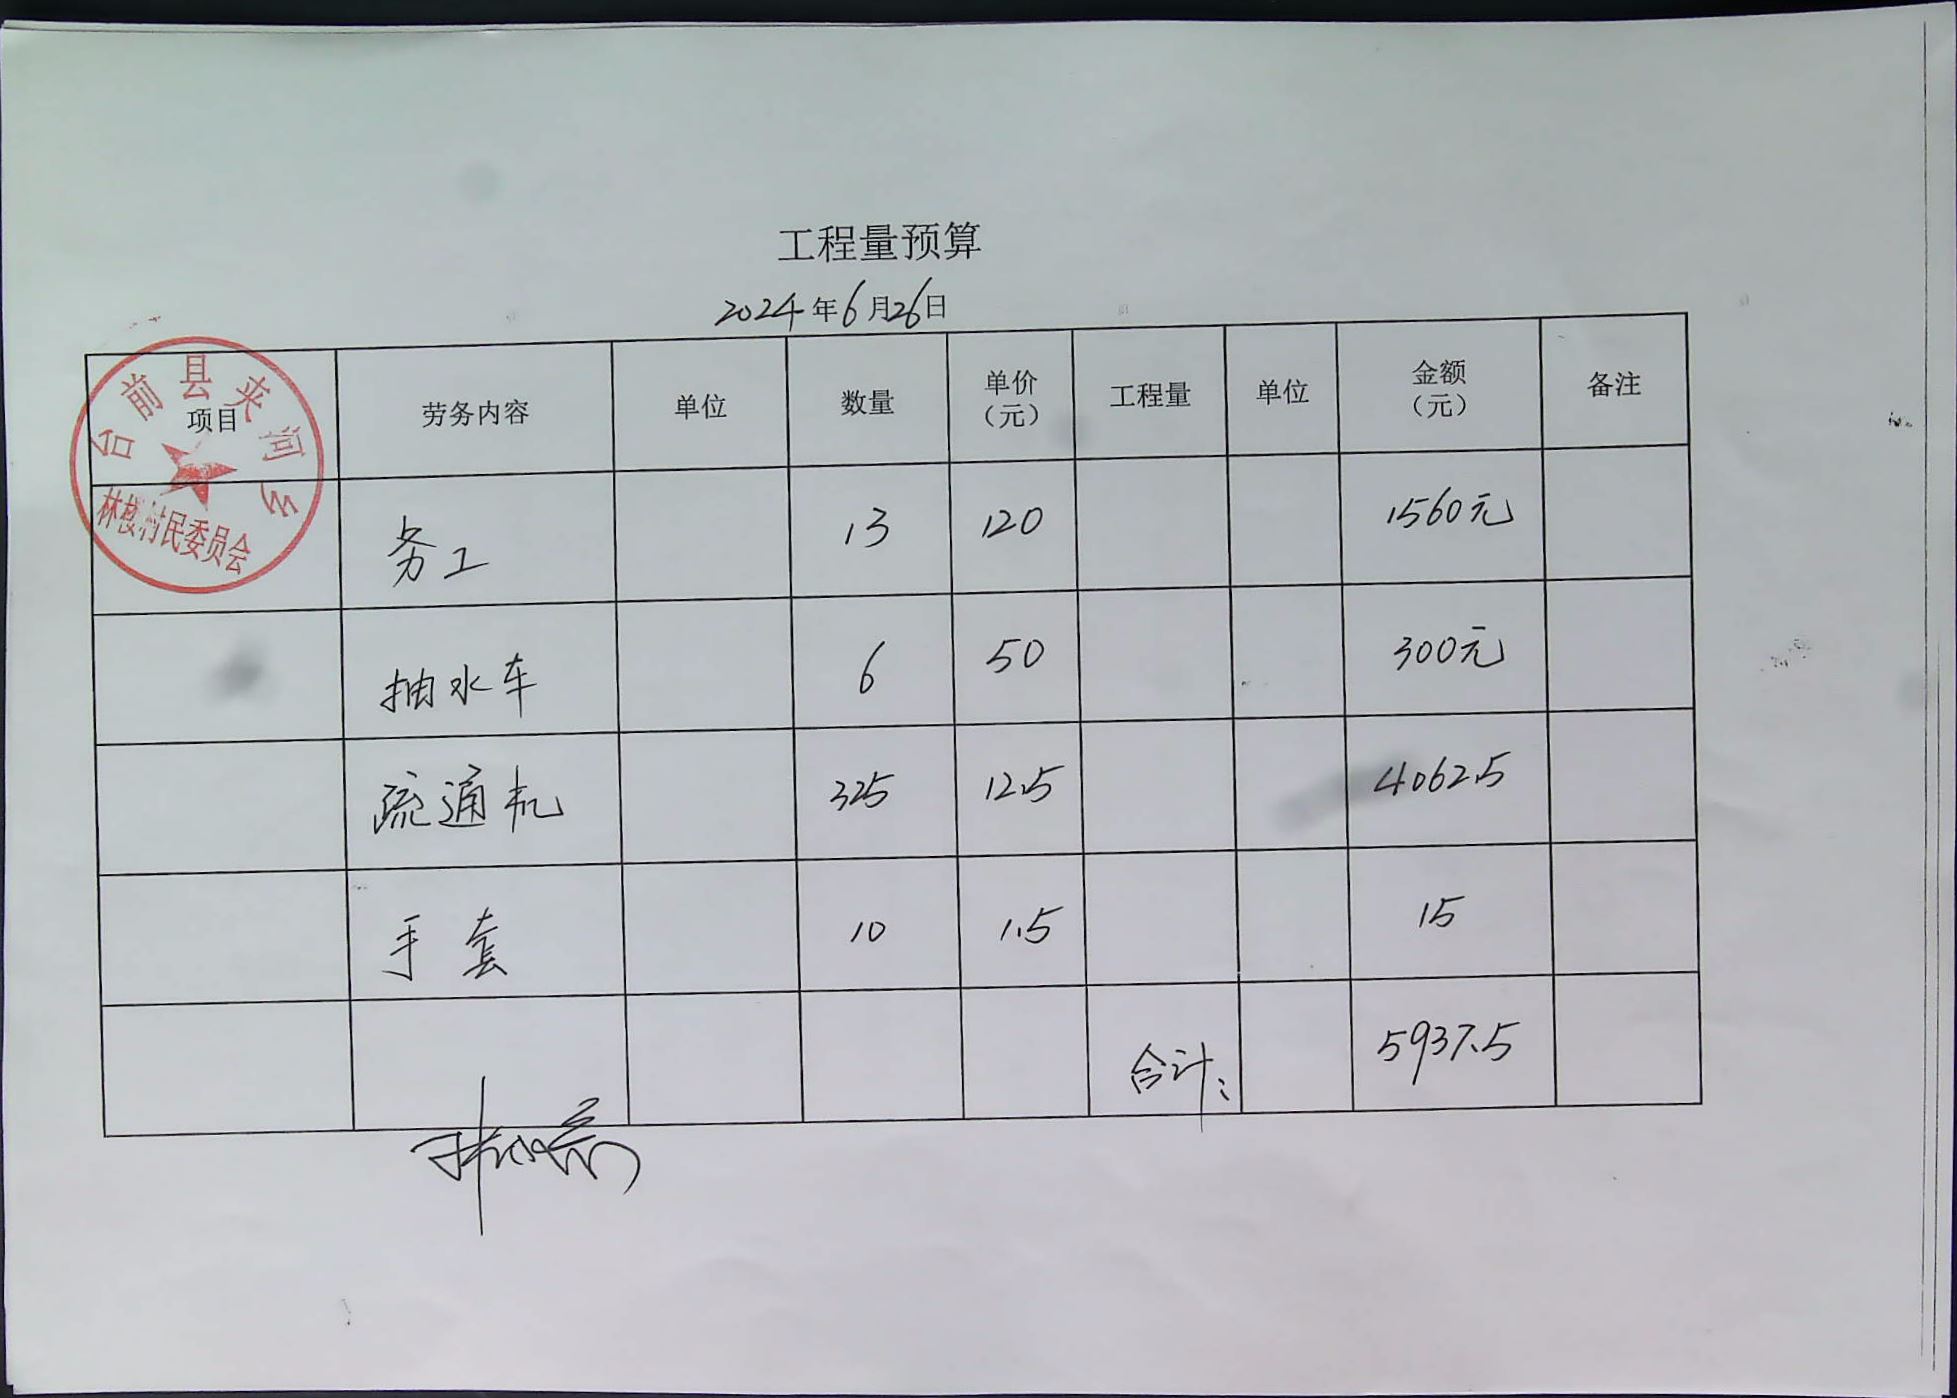 工程量预算
2024年6月26日
台前县夹河乡
林楼村民委员会
项目 劳务内容 单位 数量 单价（元） 工程量 单位 金额（元） 备注
务工 13 120 1560元
抽水车 6 50 300元
疏通机 325 12.5 4062.5
手套 10 1.5 15
合计: 5937.5